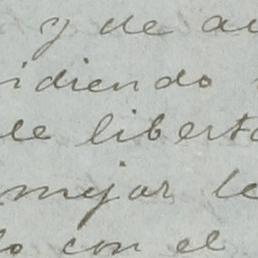 y de au
idiendo
de liberta
mejor le
lo con el